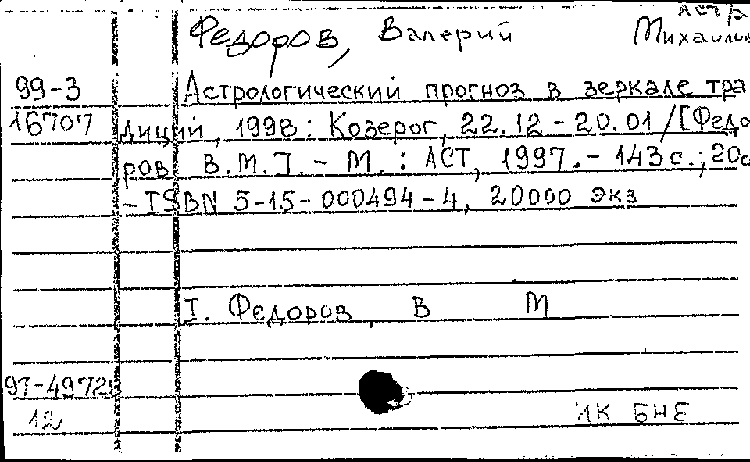 Федоров, Валерий Михаилов
99-3 Астрологический прогноз в зеркале тра
16707 диций, 1998: Козерог, 22.12-20.01/[Федо
ров В.М.]. - М. : АСТ, 1997. - 143с.; 20с
- ISBN 5-15-000494-4, 20000 экз
I. Федоров, В М
97-4972
12